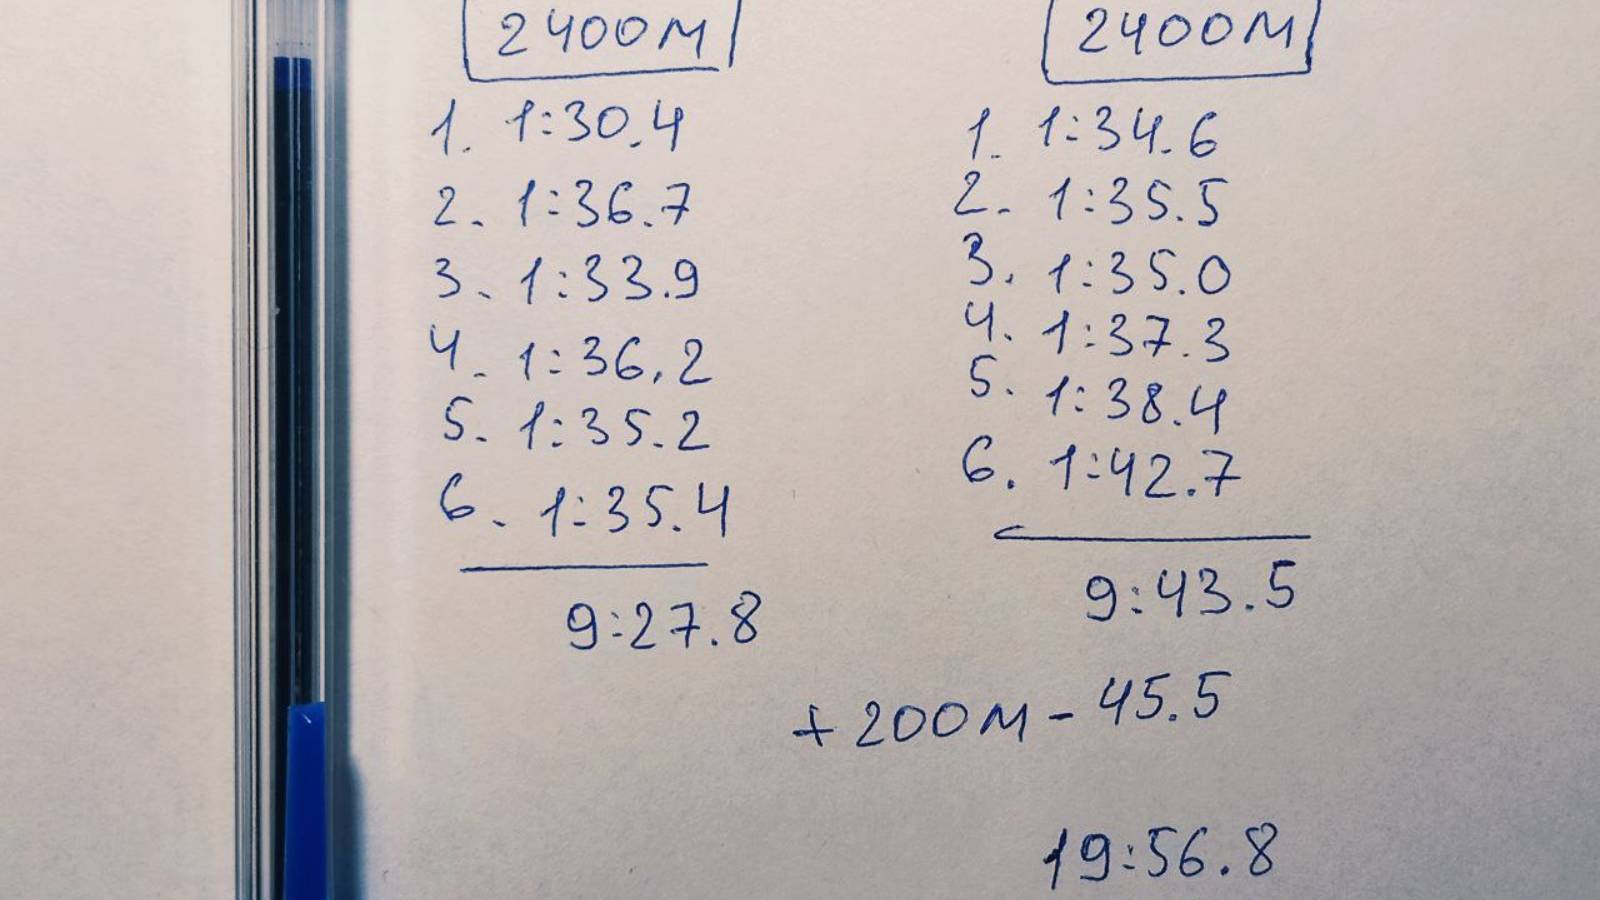 2400м
1. 1:30.4
2. 1:36.7
3. 1:33.9
4. 1:36,2
5. 1:35.2
6. 1:35.4
9:27.8
2400м
1. 1:34.6
2. 1:35.5
3. 1:35.0
4. 1:37.3
5. 1:38.4
6. 1:42.7
9:43.5
+ 200м - 45.5
19:56.8